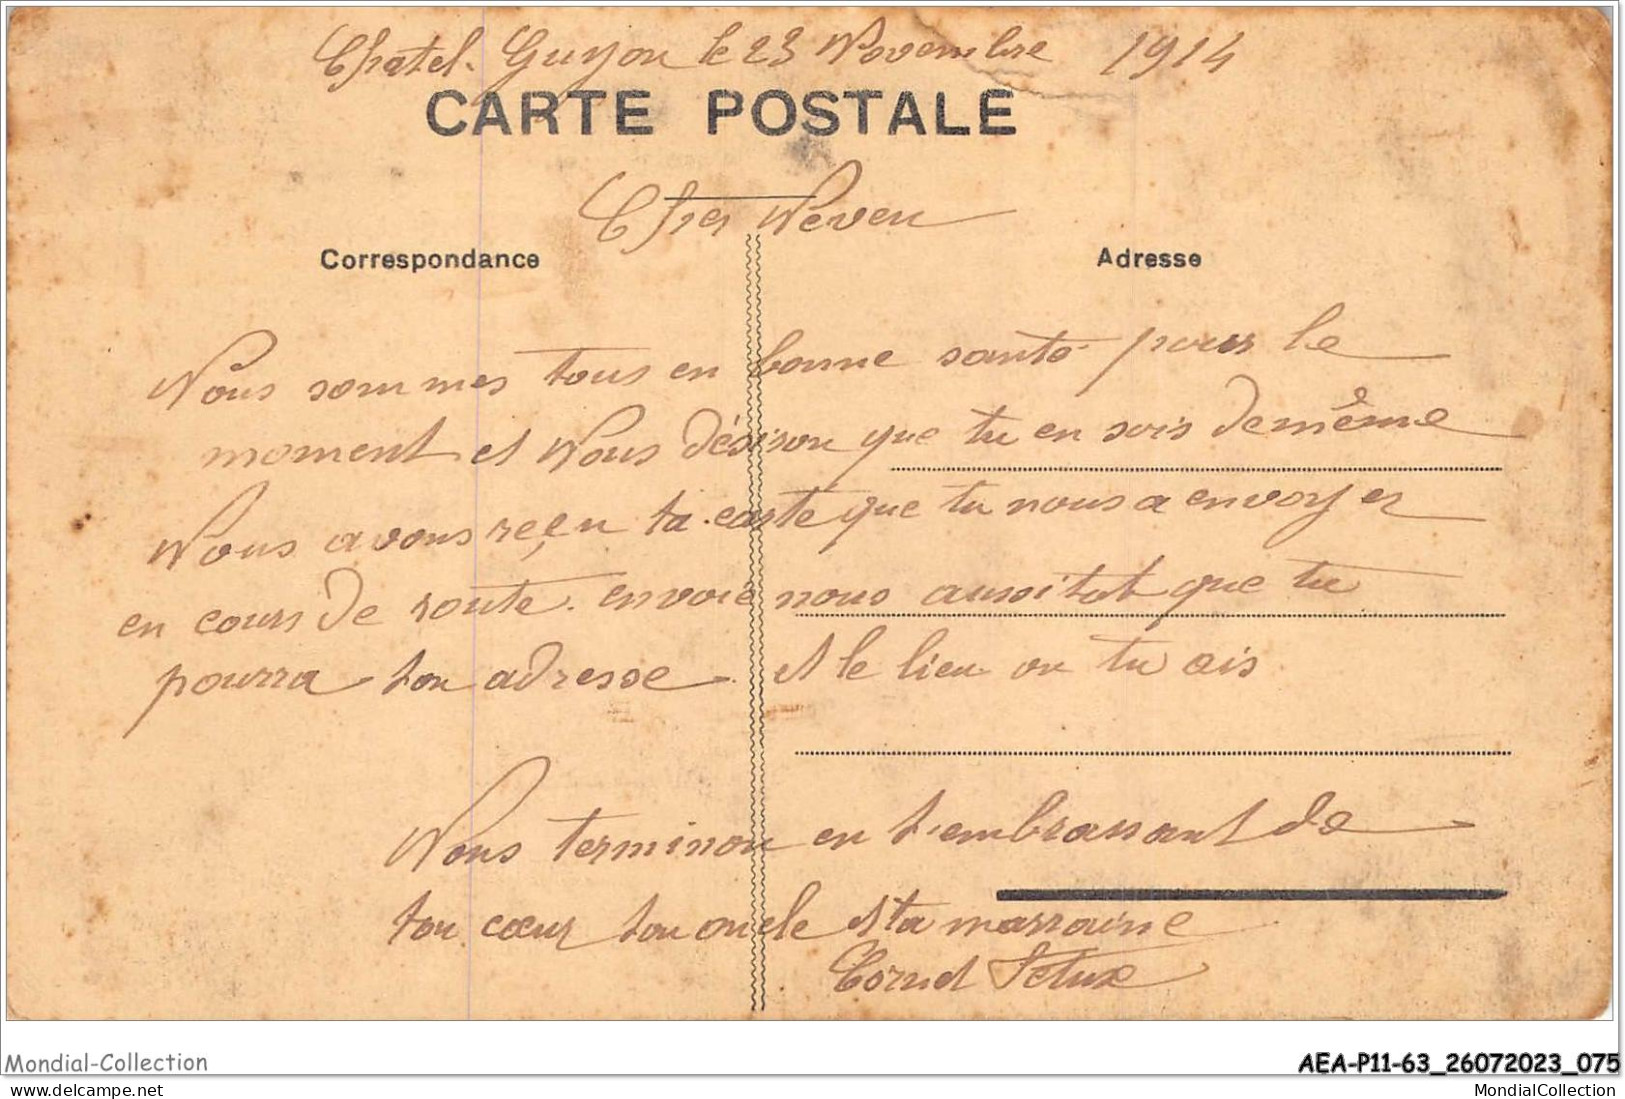 Chatel-Guyon le 23 Novembre 1914
CARTE POSTALE
Cher Neveu
Correspondance
Adresse
Nous sommes tous en bonne santé pour le
moment et Nous désiron que tu en sois de même
Nous avons reçu ta carte que tu nous a envoyer
en cours de route. envoie nous aussitot que tu
pourra ton adresse et le lieu ou tu ais
Nous terminon en t'embrassant de
ton cœur ton oncle et ta marraine
Mondial-Collection
AEA-P11-63_26072023_075
www.delcampe.net
MondialCollection